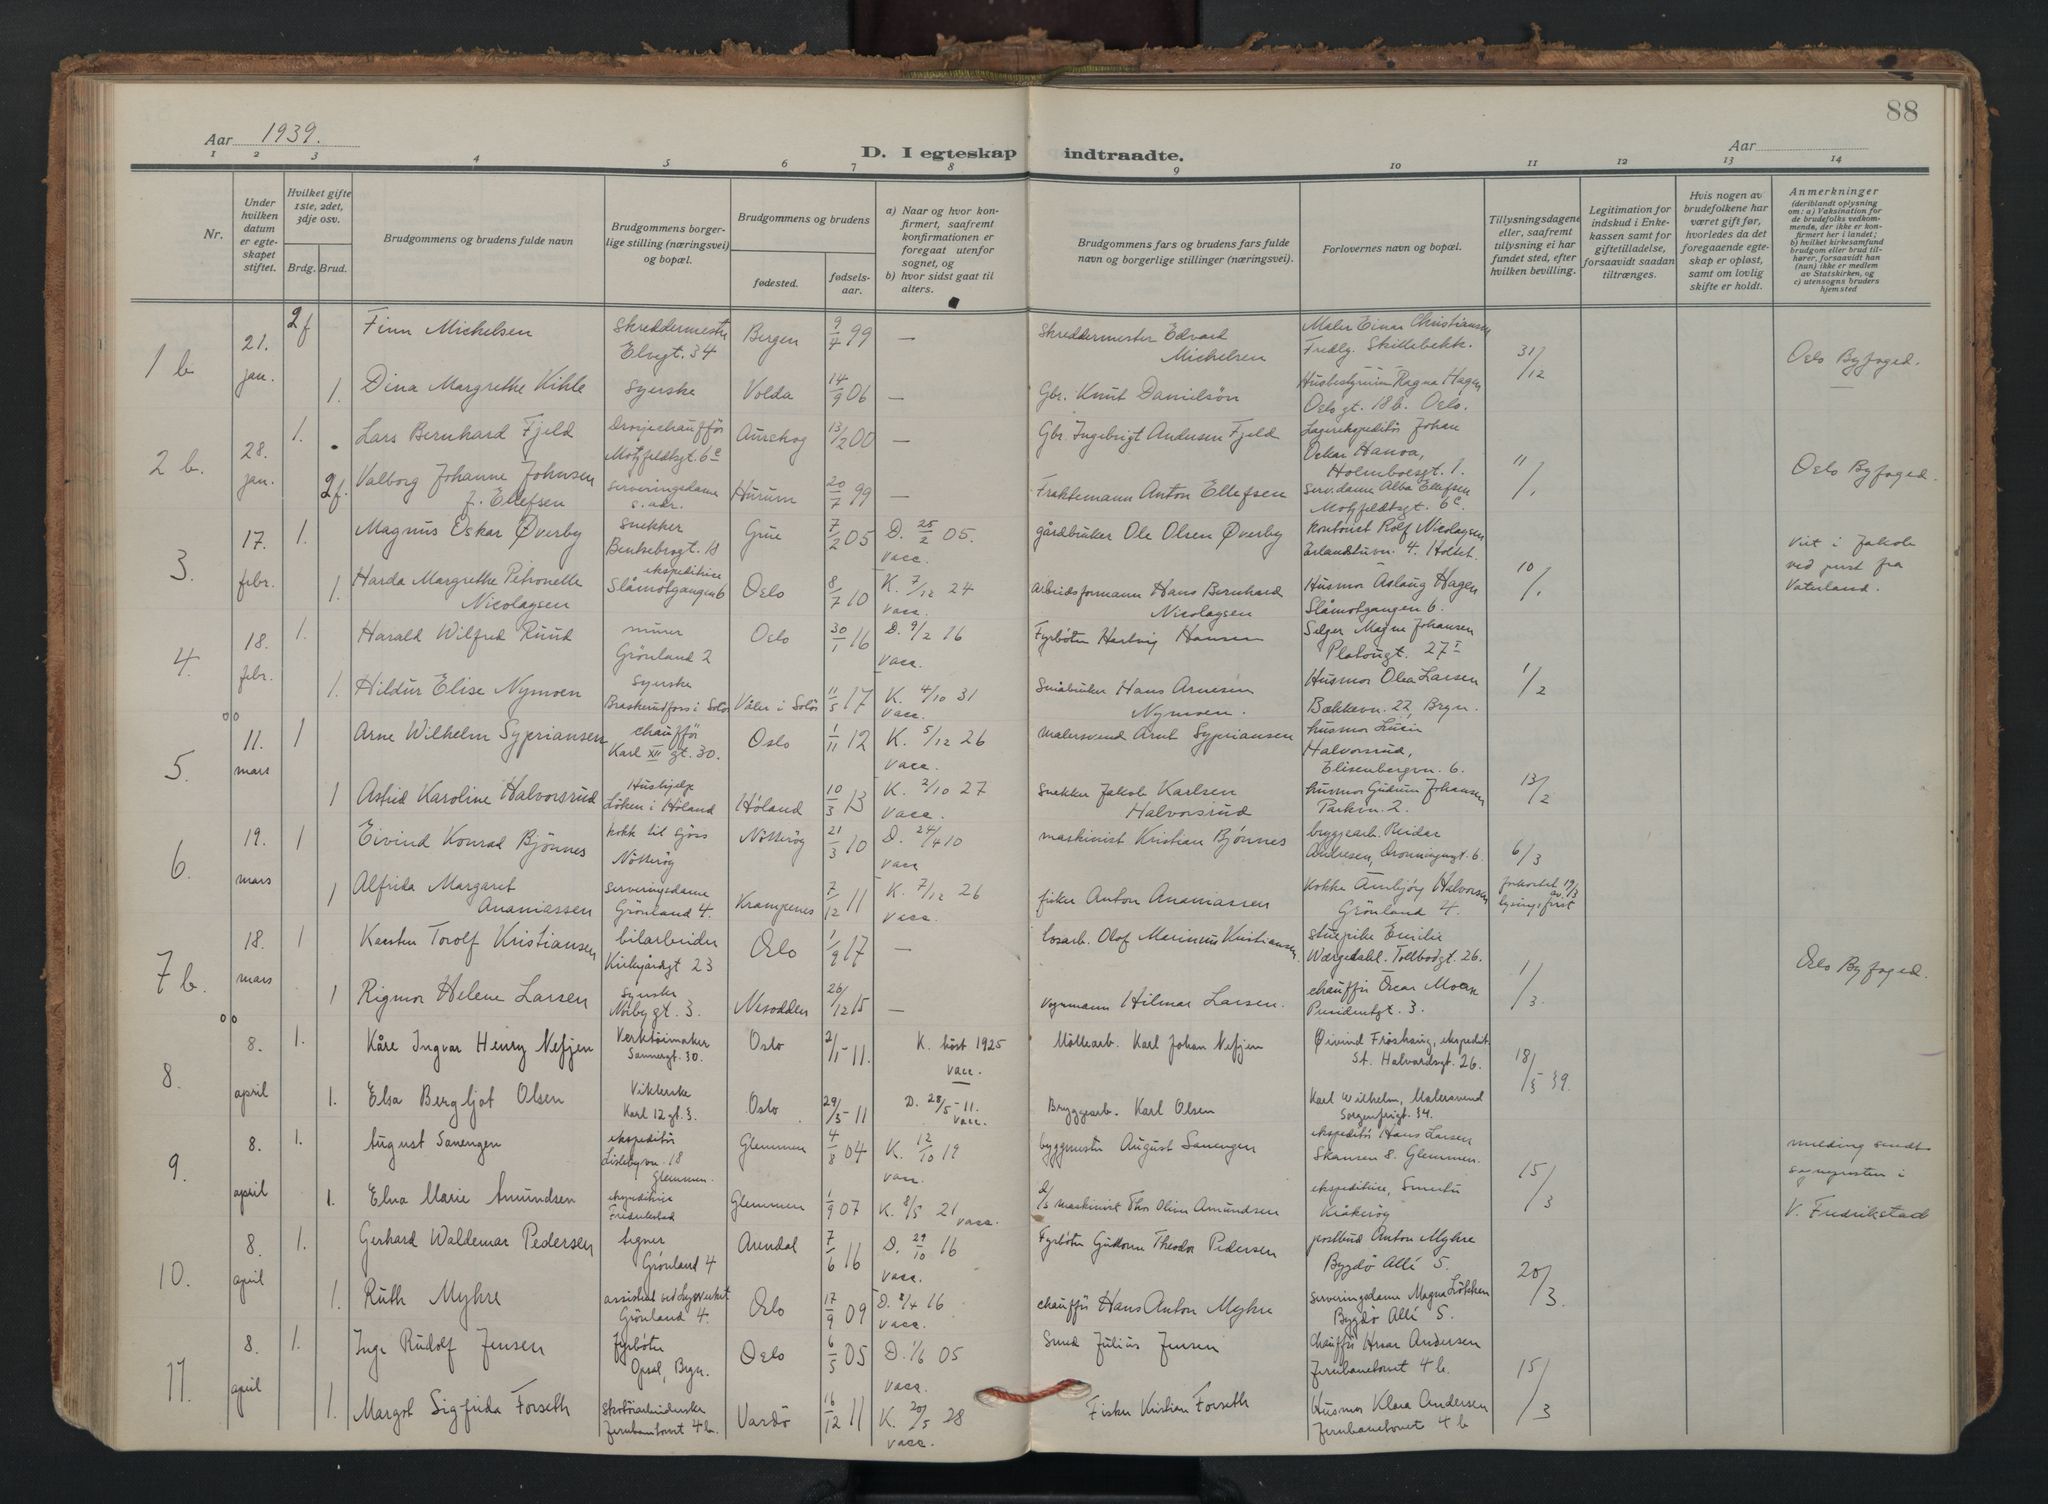 88
Aar 1939.
D. I egteskap indtraadte.
Aar
1 2 3 4 5 6 7 8 9 10 11 12 13 14
Nr.
Under hvilken datum er egteskapet stiftet.
Hvilket gifte 1ste, 2det, 3dje osv.
Brdg. Brud.
Brudgommens og brudens fulde navn
Brudgommens borgerlige stilling (næringsvei) og bopæl.
Brudgommens og brudens
fødested.
fødselsaar.
a) Naar og hvor konfirmert, saafremt konfirmationen er foregaat utenfor sognet, og
b) hvor sidst gaat til alters.
Brudgommens fars og brudens fars fulde navn og borgerlige stillinger (næringsvei).
Forlovernes navn og bopæl.
Tillysningsdagene eller, saafremt tillysning ei har fundet sted, efter hvilken bevilling.
Legitimation for indskud i Enkekassen samt for giftetilladelse, forsaavidt saadan tiltrænges.
Hvis nogen av brudefolkene har været gift før, hvorledes da det foregaaende egteskap er opløst, samt om lovlig skifte er holdt.
Anmerkninger
(deriblandt oplysning om: a) Vaksination for de brudefolks vedkommende, der ikke er konfirmert her i landet; b) hvilket kirkesamfund brudgom eller brud tilhører, forsaavidt han (hun) ikke er medlem av Statskirken, og c) utensogns bruders hjemsted
1 b. 21. jan. 2 f Finn Michelsen Skreddermester Elvegt. 34 Bergen 9/4 99 — Skreddermester Edvard Michelsen Maler Einar Christiansen Fredly. Skillebekk. 31/12 Oslo Byfoged.
1. Dina Margrethe Kihle Syerske Volda 14/9 06 — Gbr. Knut Danielsön Husbestyrerin Ragna Hagen Oslogt. 18b. Oslo.
2 b. 28. jan. 1. Lars Bernhard Fjeld Drosjechaufför Motzfeldtsgt. 6c Aurskog 13/2 00 — Gbr. Ingebrigt Andersen Fjeld Lagerekspeditör Johan Oskar Hanoa, Holmboesgt. 1. 11/1 Oslo Byfoged.
2 f. Valborg Johanne Johnsen f. Ellefsen serveringsdame s. adr. Hurum 20/7 99 — Fraktemann Anton Ellefsen serv.dame Alba Ellefsen Motzfeldtsgt. 6c.
3. 17. febr. 1. Magnus Oskar Øverby Snekker Bentsebrogt. 18 Grue 7/2 05 D. 25/2 05. vacc. gårdbruker Ole Olsen Øverby kontorist Rolf Nicolaysen Erlandstuvn. 4. Holtet. 10/1 Viet i Jakob ved prest fra Vaterland.
1. Harda Margrethe Petronelle Nicolaysen ekspeditrice Slåmotgangen 6 Oslo 8/7 10 K. 7/12 24 vacc. arbeidsformann Hans Bernhard Nicolaysen Husmor Aslaug Hagen Slåmotgangen 6.
4. 18. febr. 1. Harald Wilfred Ruud murer Grönland 2 Oslo 30/1 16 D. 9/2 16 vacc. Fyrbøter Hartvig Hansen Selger Magne Johansen Platougt. 27 I 1/2
1. Hildur Elise Nymoen Syerske Braskerudfoss i Solör Våler i Solör 11/5 17 K. 4/10 31 vacc. Småbruker Hans Arnesen Nymoen. Husmor Olea Larsen Bækkevn. 22, Bryn.
5. 11. mars 1 Arne Wilhelm Sypriansen chaufför Karl XII gt. 30. Oslo 1/11 12 K. 5/12 26 vacc. malersvend Arnt Sypriansen husmor Lucie Halvorsrud, Elisenbergvn. 6. 13/2
1 Astrid Karoline Halvorsrud Hushjelp Löken i Höland Höland 10/3 13 K. 2/10 27 vacc. Snekker Jakob Karlsen Halvorsrud husmor Gudrun Johansen Parkvn. 2.
6. 19. mars 1 Eivind Konrad Bjönnes kokk til sjöss Nötteröy Nötteröy 21/3 10 D. 24/4 10 vacc maskinist Kristian Bjönnes bryggearb. Reidar Andresen, Dronningensgt. 6. 6/3
1 Alfrida Margaret Ananiassen serveringsdame Grönland 4. Krampenes 7/12 11 K. 7/12 26 vacc. fisker Anton Ananiassen Kokke Armbjörg Halvorsen Grönland 4. forkortet 19/3 av lysingsfrist
7 b. 18. mars 1 Karsten Torolf Kristiansen bilarbeider Kirkegårdsgt 23 Oslo 1/9 17 — losarb. Olof Marinius Kristiansen. stuepike Emilie Wærgedahl. Tollbodgt. 26. 1/3. Oslo Byfoged.
1 Rigmor Helene Larsen Syerske Nörbygt. 3. Nesodden 26/12 15 — Vognmann Hilmar Larsen. chauffør Oscar Moen Presidentgt. 3.
8. 8. april 1. Kåre Ingvar Henry Nefjen Verktöimaker Sannergt. 30. Oslo 2/1-11. K. höst 1925 vacc. Möllearb. Karl Johan Nefjen Øivind Fröshaug, ekspedit. St. Halvardsgt. 26. 18/3 39.
1. Elsa Bergljot Olsen Viklerske Karl 12 gt. 3. Oslo 29/3-11 D. 28/5-11. vacc. Bryggearb. Karl Olsen Karl Wilhelm, Malersvend Sorgenfrigt. 34.
9. 8. april 1. August Sanengen ekspeditör Lislebyvn. 18 Glemmen. Glemmen 4/8 04 K. 12/10 19 vacc. byggmester August Sanengen ekspeditör Hans Larsen Skansen 8. Glemmen. 15/3 melding sendt sognepresten i V. Fredrikstad
1. Elna Marie Amundsen ekspeditrice Fredrikstad Glemmen 1/9 07 K. 8/5 21 vacc. d/s maskinist Thor Oliver Amundsen ekspeditrice, Kråkeröy
10. 8. april 1. Gerhard Waldemar Pedersen tegner Grönland 4 Arendal 7/6 16 D. 29/10 16 vacc. Fyrböter Guttorm Theodor Pedersen postbud Anton Myhre Bygdö Allé 5. 20/3.
1. Ruth Myhre assistent ved Lysverket Grönland 4. Oslo 17/9 09 D. 2/4 16 vacc. chaufför Hans Anton Myhre serveringsdame Magna Lökken Bygdö Allé 5.
11. 8. april 1. Inge Rudolf Jensen fyrböter Opsal, Bryn. Oslo 6/5 05 D. 1/6 05 vacc. Smed Julius Jensen Chaufför Hroar Andersen Jernbanetorvet 4 b. 15/3
1. Margot Sigfrida Forseth skotöiarbeiderske Jernbanetorvet 4 b. Vardö 16/12 11 K. 20/5 28 vacc. Fisker Kristian Forseth Husmor Klara Andersen Jernbanetorvet 4 b